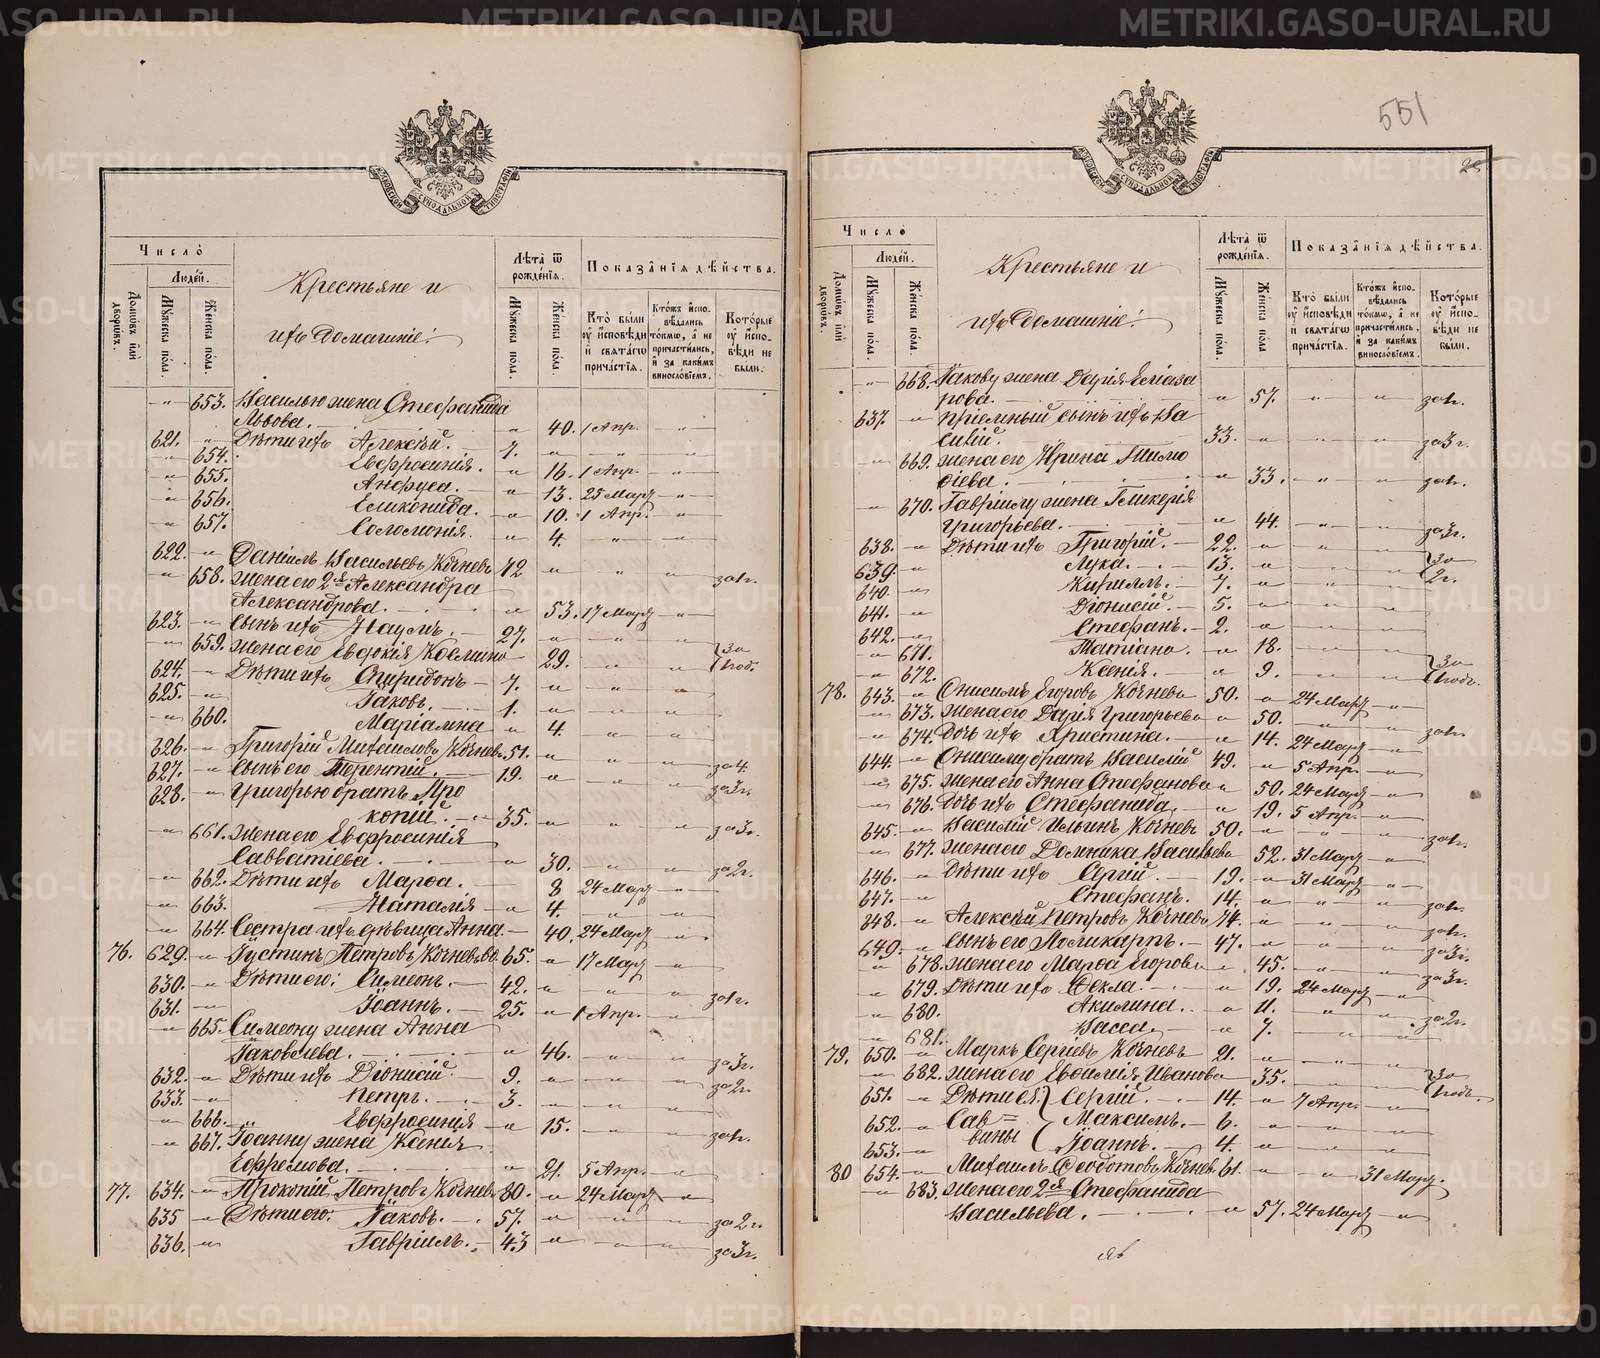 METRIKI.GASO-URAL.RU
551
МОСКОВСКОЙ СѴНОДАЛЬНОЙ ТИПОГРАФІИ
Число̀
Людей.
Домѡвъ или дворѡвъ.
Мꙋжеска пола.
Женска пола.
Крестьяне и
ихъ Домашніе:
Лѣта̀ ѿ рожденїѧ.
Мꙋжеска пола.
Женска пола.
Показанїѧ дѣйства.
Кто̀ были оу҆ исповѣди и свѧтагѡ причастїѧ.
Ктожъ исповѣдались токмѡ, а не причастились, и за какимъ винословїемъ.
Которые оу҆ исповѣди не были.
" 653. Василью жена Стефанида
Львова. " 40. 1 Апр. "
621. " Дѣти ихъ Алексѣй. 7. " " "
" 654. Евфросинія. " 16. 1 Апр. "
" 655. Анфуса. " 13. 25 Март "
" 656. Еликонида. " 10. 1 Апр. "
" 657. Соломонія. " 4. " "
622. " Даніилъ Васильевъ Кочневъ 72 " " " за 1 г.
" 658. Жена его 2я Александра
Александрова. " 53. 17 Март "
623. " Сынъ ихъ Наумъ. 27. " " "
" 659. Жена его Евдокія Косьмина " 29. " " за 1 год.
624. " Дѣти ихъ Спиридонъ 7. " " "
625. " Іаковъ. 1. " " "
" 660. Маріамна " 4. " "
626. " Григорій Михаиловъ Кочневъ 51. " " " за 4.
627. " Сынъ его Терентій. 19. " " " за 3 г.
628. " Григорью братъ Про
копій. 35. " " " за 3 г.
" 661. Жена его Евфросинія
Савватіева. " 30. " " за 2 г.
" 662. Дѣти ихъ Марѳа. " 8 24 Март "
" 663. Наталія " 4. " "
" 664. Сестра ихъ дѣвица Анна. " 40. 24 Март "
76. 629. " Іустинъ Петровъ Кочневъ вд. 65. " 17 Март "
630. " Дѣти его: Симеонъ. 42. " " " за 1 г.
631. " Іоаннъ. 25. " 1 Апр. "
" 665. Симеону жена Анна
Іаковлева. " 46. " " за 3 г.
632. " Дѣти ихъ Діонисій. 9. " " " за 2 г.
633. " Петръ. 3. " " "
" 666. Евфросинія " 15. " " за 1 г.
" 667. Іоанну жена Ксенія
Ефремова. " 21. 5 Апр. "
77. 634. " Прокопій Петровъ Кочневъ 80. " 24 Март "
635 " Дѣти его: Іаковъ. 57. " " " за 2 г.
636. " Гавріилъ. 43 " " " за 3 г.
Число̀
Людей.
Домѡвъ или дворѡвъ.
Мꙋжеска пола.
Женска пола.
Крестьяне и
ихъ Домашніе:
Лѣта̀ ѿ рожденїѧ.
Мꙋжеска пола.
Женска пола
Показанїѧ дѣйства.
Кто̀ были оу҆ исповѣди и свѧтагѡ причастїѧ.
Ктожъ исповѣдались токмѡ, а не причастились, и за какимъ винословїемъ.
Которые оу҆ исповѣди не были.
" 668. Іакову жена Дарія Еліаза
рова. " 57. " " за 1 г.
637. " Пріемный сынъ ихъ Ва
силій. 33. " " " за 3 г.
" 669. Жена его Ирина Тимо
ѳіева. " 33. " " за 1 г.
" 670. Гавріилу жена Гликерія
Григорьева. " 44. " " за 3 г.
638. " Дѣти ихъ Григорій. 22. " " " за
639. " Лука. 13. " " " 2 г.
640. " Кириллъ. 7. " " "
641. " Діонисій. 5. " " "
642. " Стефанъ. 2. " " "
" 671. Татіана. " 18. " " за
" 672. Ксенія. " 9. " " 1 год.
78. 643. " Онисимъ Егоровъ Кочневъ 50. " 24 Март "
" 673. Жена его Дарія Григорьева " 50. " " за 1 г.
" 674. Дочь ихъ Христина. " 14. 24 Март "
644. " Онисиму братъ Василій 49. " 5 Апр. "
" 675. Жена его Анна Стефанова " 50. 24 Март "
" 676. Дочь ихъ Стефанида " 19. 5 Апр. "
645. " Василій Ильинъ Кочневъ 50. " " " за 1 г.
" 677. Жена его Домника Васильева 52. 31 Март "
646. " Дѣти ихъ Сергій. 19. " 31 Март "
647. " Стефанъ. 14. " " " за 1 г.
648. " Алексѣй Петровъ Кочневъ 74. " " " за 1 г.
649. " Сынъ его Поликарпъ. 47. " " " за 3 г.
" 678. Жена его Марѳа Егорова " 45. " " за 3 г.
" 679. Дѣти ихъ Ѳекла. " 19. 24 Март "
" 680. Акилина. " 11. " " за 2 г.
" 681. Васса. " 7. " "
79. 650. " Маркъ Сергіевъ Кочневъ 21. " " "
" 682. Жена его Евѳимія Иванова 35. " " за 1 год.
651. " Дѣти ея Сергій. 14. " 7 Апр. "
652. " Сав= Максимъ. 6. " " "
653. " вины Іоаннъ. 4. " " "
80 654. " Михаилъ Ѳеодотовъ Кочневъ 61. " " 31 Март.
" 683. Жена его 2я Стефанида
Васильева. " 57. 24 Март "